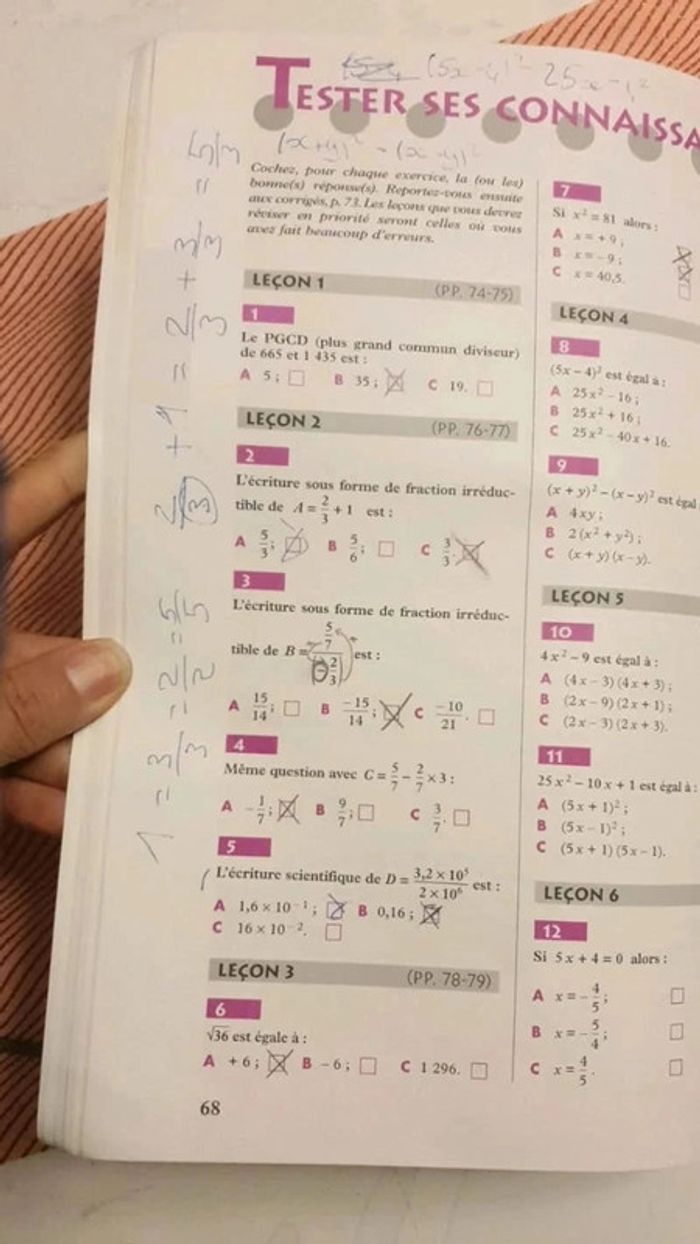 (5x-4)² 25x-
TESTER SES CONNAISSA
(x+y)² - (x-y)²
Cochez, pour chaque exercice, la (ou les)
bonne(s) réponse(s). Reportez-vous ensuite
aux corrigés, p. 73. Les leçons que vous devrez
réviser en priorité seront celles où vous
avez fait beaucoup d'erreurs.
LEÇON 1 (PP. 74-75)
1
Le PGCD (plus grand commun diviseur)
de 665 et 1 435 est :
A 5 ; B 35 ; C 19.
LEÇON 2 (PP. 76-77)
2
L'écriture sous forme de fraction irréduc-
tible de A = 2/3 + 1 est :
A 5/3 ; B 5/6 ; C 3/3.
3
L'écriture sous forme de fraction irréduc-
tible de B = (5/7)/(-2/3) est :
A 15/14 ; B -15/14 ; C -10/21.
4
Même question avec C = 5/7 - 2/7 × 3 :
A -1/7 ; B 9/7 ; C 3/7.
5
L'écriture scientifique de D = (3,2 × 10⁵)/(2 × 10⁶) est :
A 1,6 × 10⁻¹ ; B 0,16 ;
C 16 × 10⁻².
LEÇON 3 (PP. 78-79)
6
√36 est égale à :
A +6 ; B -6 ; C 1 296.
68
7
Si x² = 81 alors :
A x = +9 ;
B x = -9 ;
C x = 40,5.
LEÇON 4
8
(5x - 4)² est égal à :
A 25x² - 16 ;
B 25x² + 16 ;
C 25x² - 40x + 16.
9
(x + y)² - (x - y)² est égal
A 4xy ;
B 2(x² + y²) ;
C (x + y)(x - y).
LEÇON 5
10
4x² - 9 est égal à :
A (4x - 3)(4x + 3) ;
B (2x - 9)(2x + 1) ;
C (2x - 3)(2x + 3).
11
25x² - 10x + 1 est égal à :
A (5x + 1)² ;
B (5x - 1)² ;
C (5x + 1)(5x - 1).
LEÇON 6
12
Si 5x + 4 = 0 alors :
A x = -4/5 ;
B x = -5/4 ;
C x = 4/5.
2/3 + 1 = 2/3 + 3/3 = 5/3
1 = 3/3 = 2/2 = 5/5